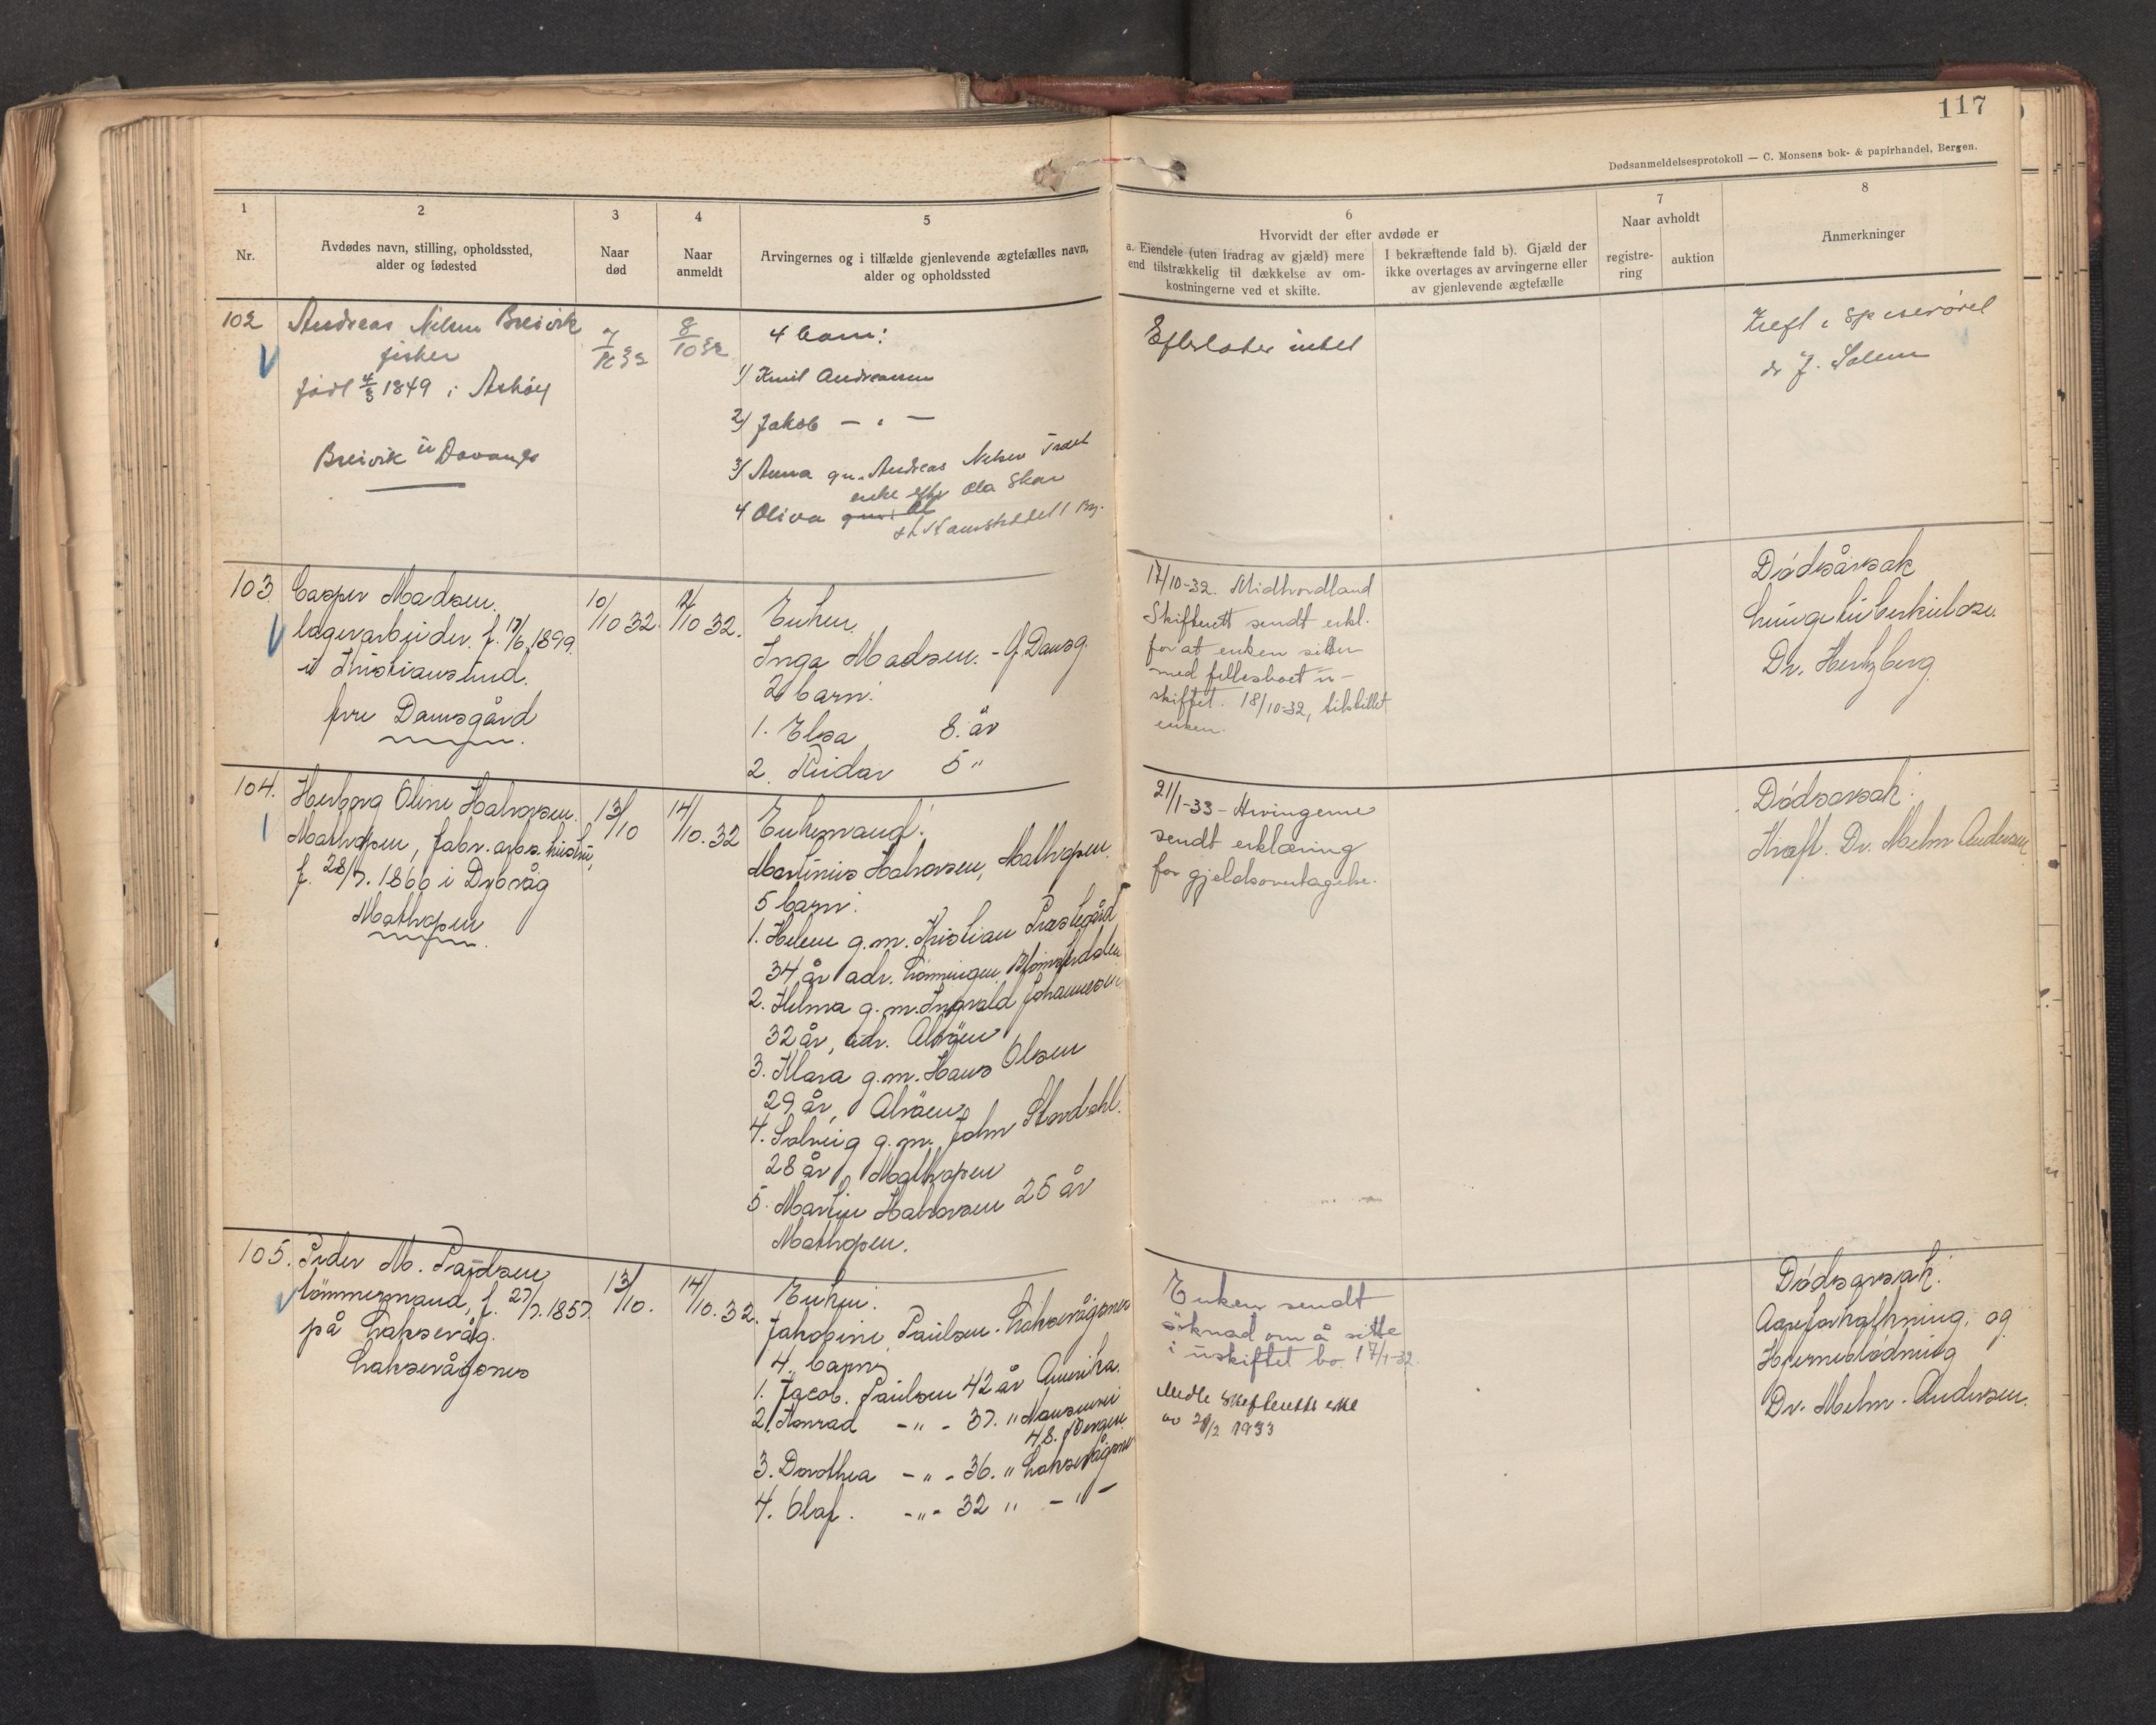 117
Dødsanmeldelsesprotokoll — C. Monsens bok- & papirhandel, Bergen.
1
Nr.
2
Avdødes navn, stilling, opholdssted,
alder og fødested
3
Naar
død
4
Naar
anmeldt
5
Arvingernes og i tilfælde gjenlevende ægtefælles navn,
alder og opholdssted
6
Hvorvidt der efter avdøde er
a. Eiendele (uten fradrag av gjæld) mere
end tilstrækkelig til dækkelse av om-
kostningerne ved et skifte.
I bekræftende fald b). Gjæld der
ikke overtages av arvingerne eller
av gjenlevende ægtefælle
7
Naar avholdt
registre-
ring
auktion
8
Anmerkninger
102
Andreas Nilsen Breivik
fisker
født 4/3 1849 i Askøy
Breivik i Davanger
7/10 32
8/10 32
4 barn:
1) Emil Andreassen
2) Jakob — " —
3/ Anna g.m. Andreas Nilsen
enke efter Ola Skar
4 Oliva
Efterlater intet
Kreft i spiserøret
dr J. Solem
103.
Casper Madsen.
lagerarbeider. f. 17/6 1899.
i Kristiansund.
øvre Damsgård
10/10 32.
12/10 32.
Enken.
Inga Madsen. - Ø. Damsg.
2 barn:
1. Elsa 8. år
2. Reidar 5 "
17/10-32. Midhordland
Skifterett sendt erkl.
for at enken sitter
med fellesboet u-
skiftet. 18/10-32, tilstillet
enken.
Dødsårsak
Lungetuberkulose.
Dr. Hertzberg
104.
Herborg Oline Halvorsen.
Mathopen, fabr. arbs. hustru,
f. 28/7. 1866 i Dybvåg
Mathopen
13/10
14/10. 32
Enkemand:
Martinius Halvorsen, Mathopen.
5 barn:
1. Helene g.m. Kristian Prestegård
34 år adr. Lønningen, Blomsterdalen
2. Hilma g.m. Ingvald Johannesen
32 år, adr. Alvøen
3. Klara g.m. Hans Olsen
29 år, Alvøen
4. Solveig g.m. John Stordahl.
28 år, Mathopen
5. Martin Halvorsen 25 år
Mathopen.
21/1-33 - Arvingerne
sendt erklæring
for gjeldsovertagelse.
Dødsarsak:
Kræft. Dr. Mehn Andersen
105.
Peder M. Paulsen
tømmermand, f. 27/7. 1857.
på Laksevåg.
Laksevågsnes
13/10.
14/10. 32.
Enken:
Jakobine Paulsen. Laksevågsnes
4 barn
1. Jacob. Paulsen 42 år Amerika.
2. Konrad - " - 37. " Nansenvei
48. Bergen
3. Dorothea - " - 36. " Laksevågsnes
4. Olaf. - " - 32 " - " -
Enken sendt
søknad om å sitte
i uskiftet bo. 17/1-32.
Medt. skifterettens erkl
av 21/2 1933
Dødsarsak:
Aareforkalkning. og
Hjerneblødning
Dr. Mehn. Andersen.